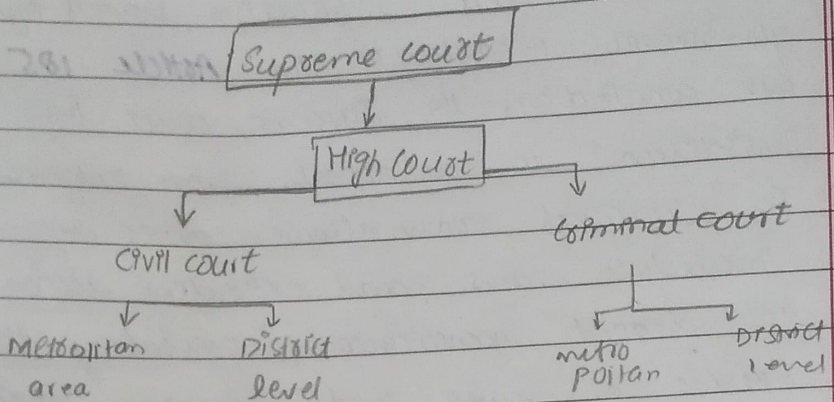 Supreme court
High court
Civil court
Criminal court
Metropolitan
area
District
level
metro
politan
District
level